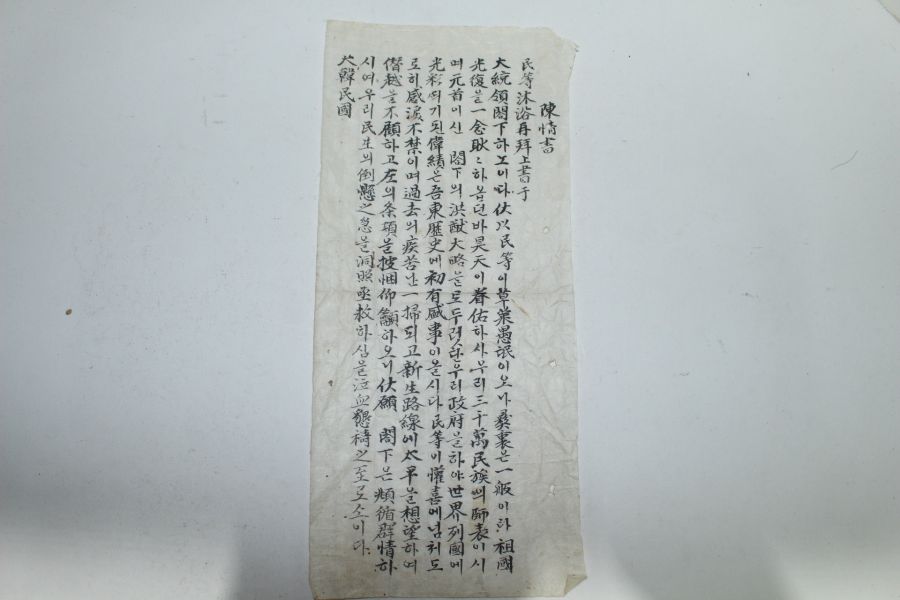 陳情書
民等沐浴再拜上書于
大統領閣下하노이다 伏以民等이 草萊愚氓이오나 彛衷은 一般이라 祖國
光復을 一念耿々하옵던바 昊天이 眷佑하사 우리 三千萬民族의 師表이시
며 元首이신 閣下의 洪猷大略으로 두렷한 우리 政府을 하야 世界列國에
光彩여기된 偉績은 吾東歷史에 初有盛事이올시다 民等이 懽喜에 넘처 도
로히 感淚不禁이며 過去의 疾苦난 一掃되고 新生路線에 太平을 想望하며
僭越을 不顧하고 左의 条項을 披悃仰籲하오니 伏願 閣下은 頫循群情하
시여 우리 民生의 倒懸之急을 洞照亟救하심을 泣血懇禱之至로소이다
大韓民國